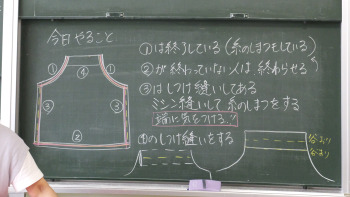 今日やること
①は終了している(糸のしまつもしている)
②が終わっていない人は終わらせる
③はしつけ縫いしてある
ミシン縫いして糸のしまつをする
端に気をつける!!
④のしつけ縫いをする
① ④ ①
③ ③
②
谷おり
谷おり